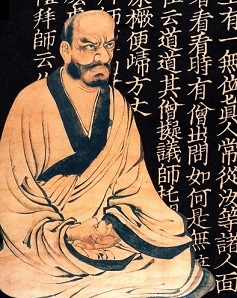 上有一無位眞人常從汝等諸人面
看看時有僧出問如何是無
云道道其僧擬議師托
橛便歸方丈
拜師云